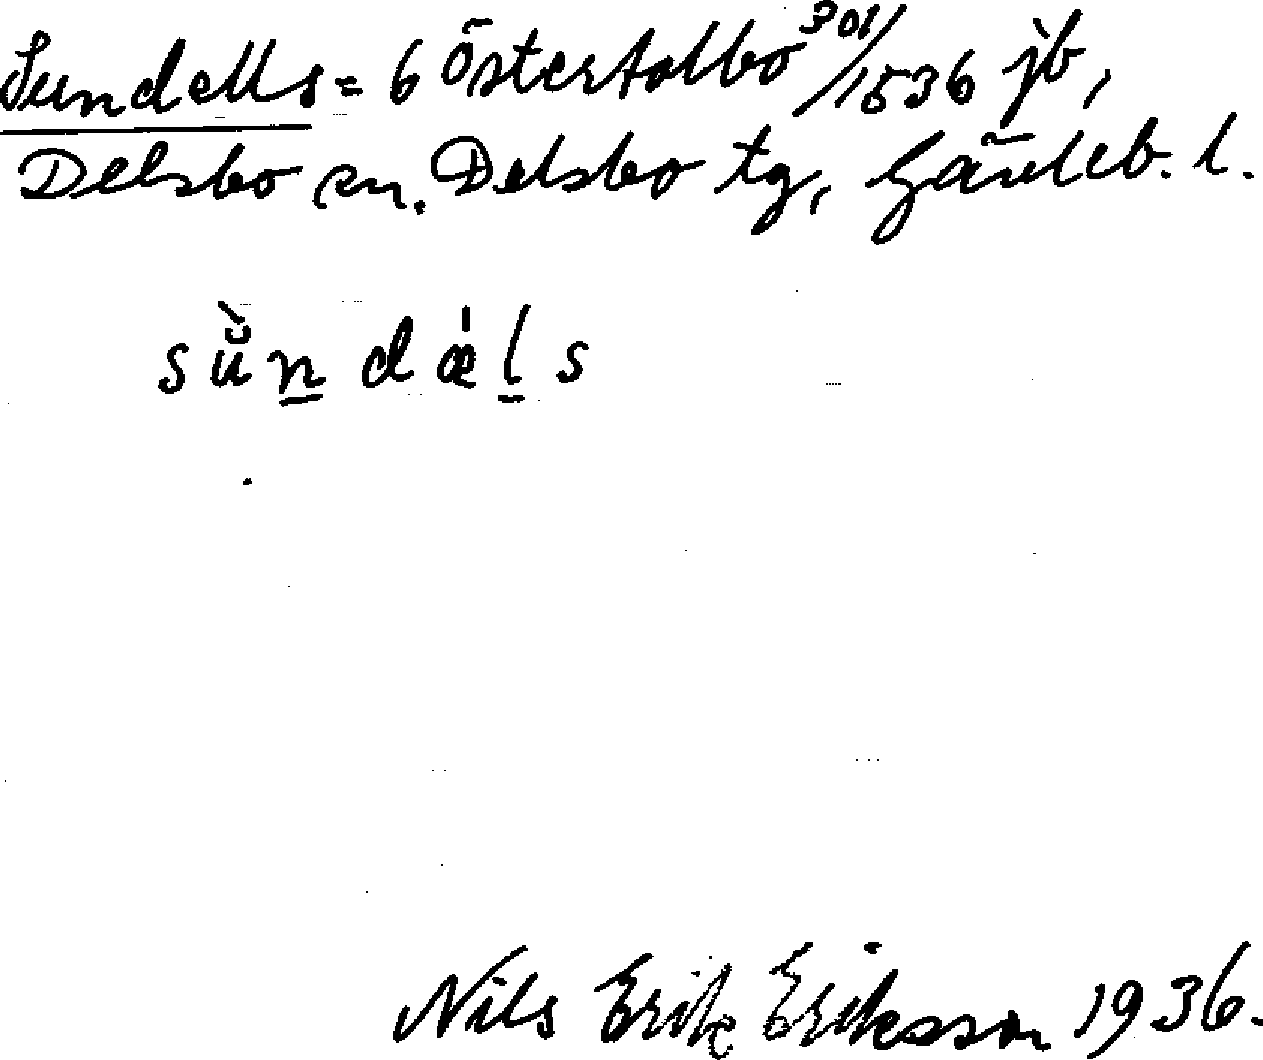 Sundells = 6 Österfallbo 301/1536 jb,
Delsbo sn. Delsbo tg, Gävleb. l.
sŭ̀n̲dæ̍l̲s
Nils Erik Eriksson 1936.